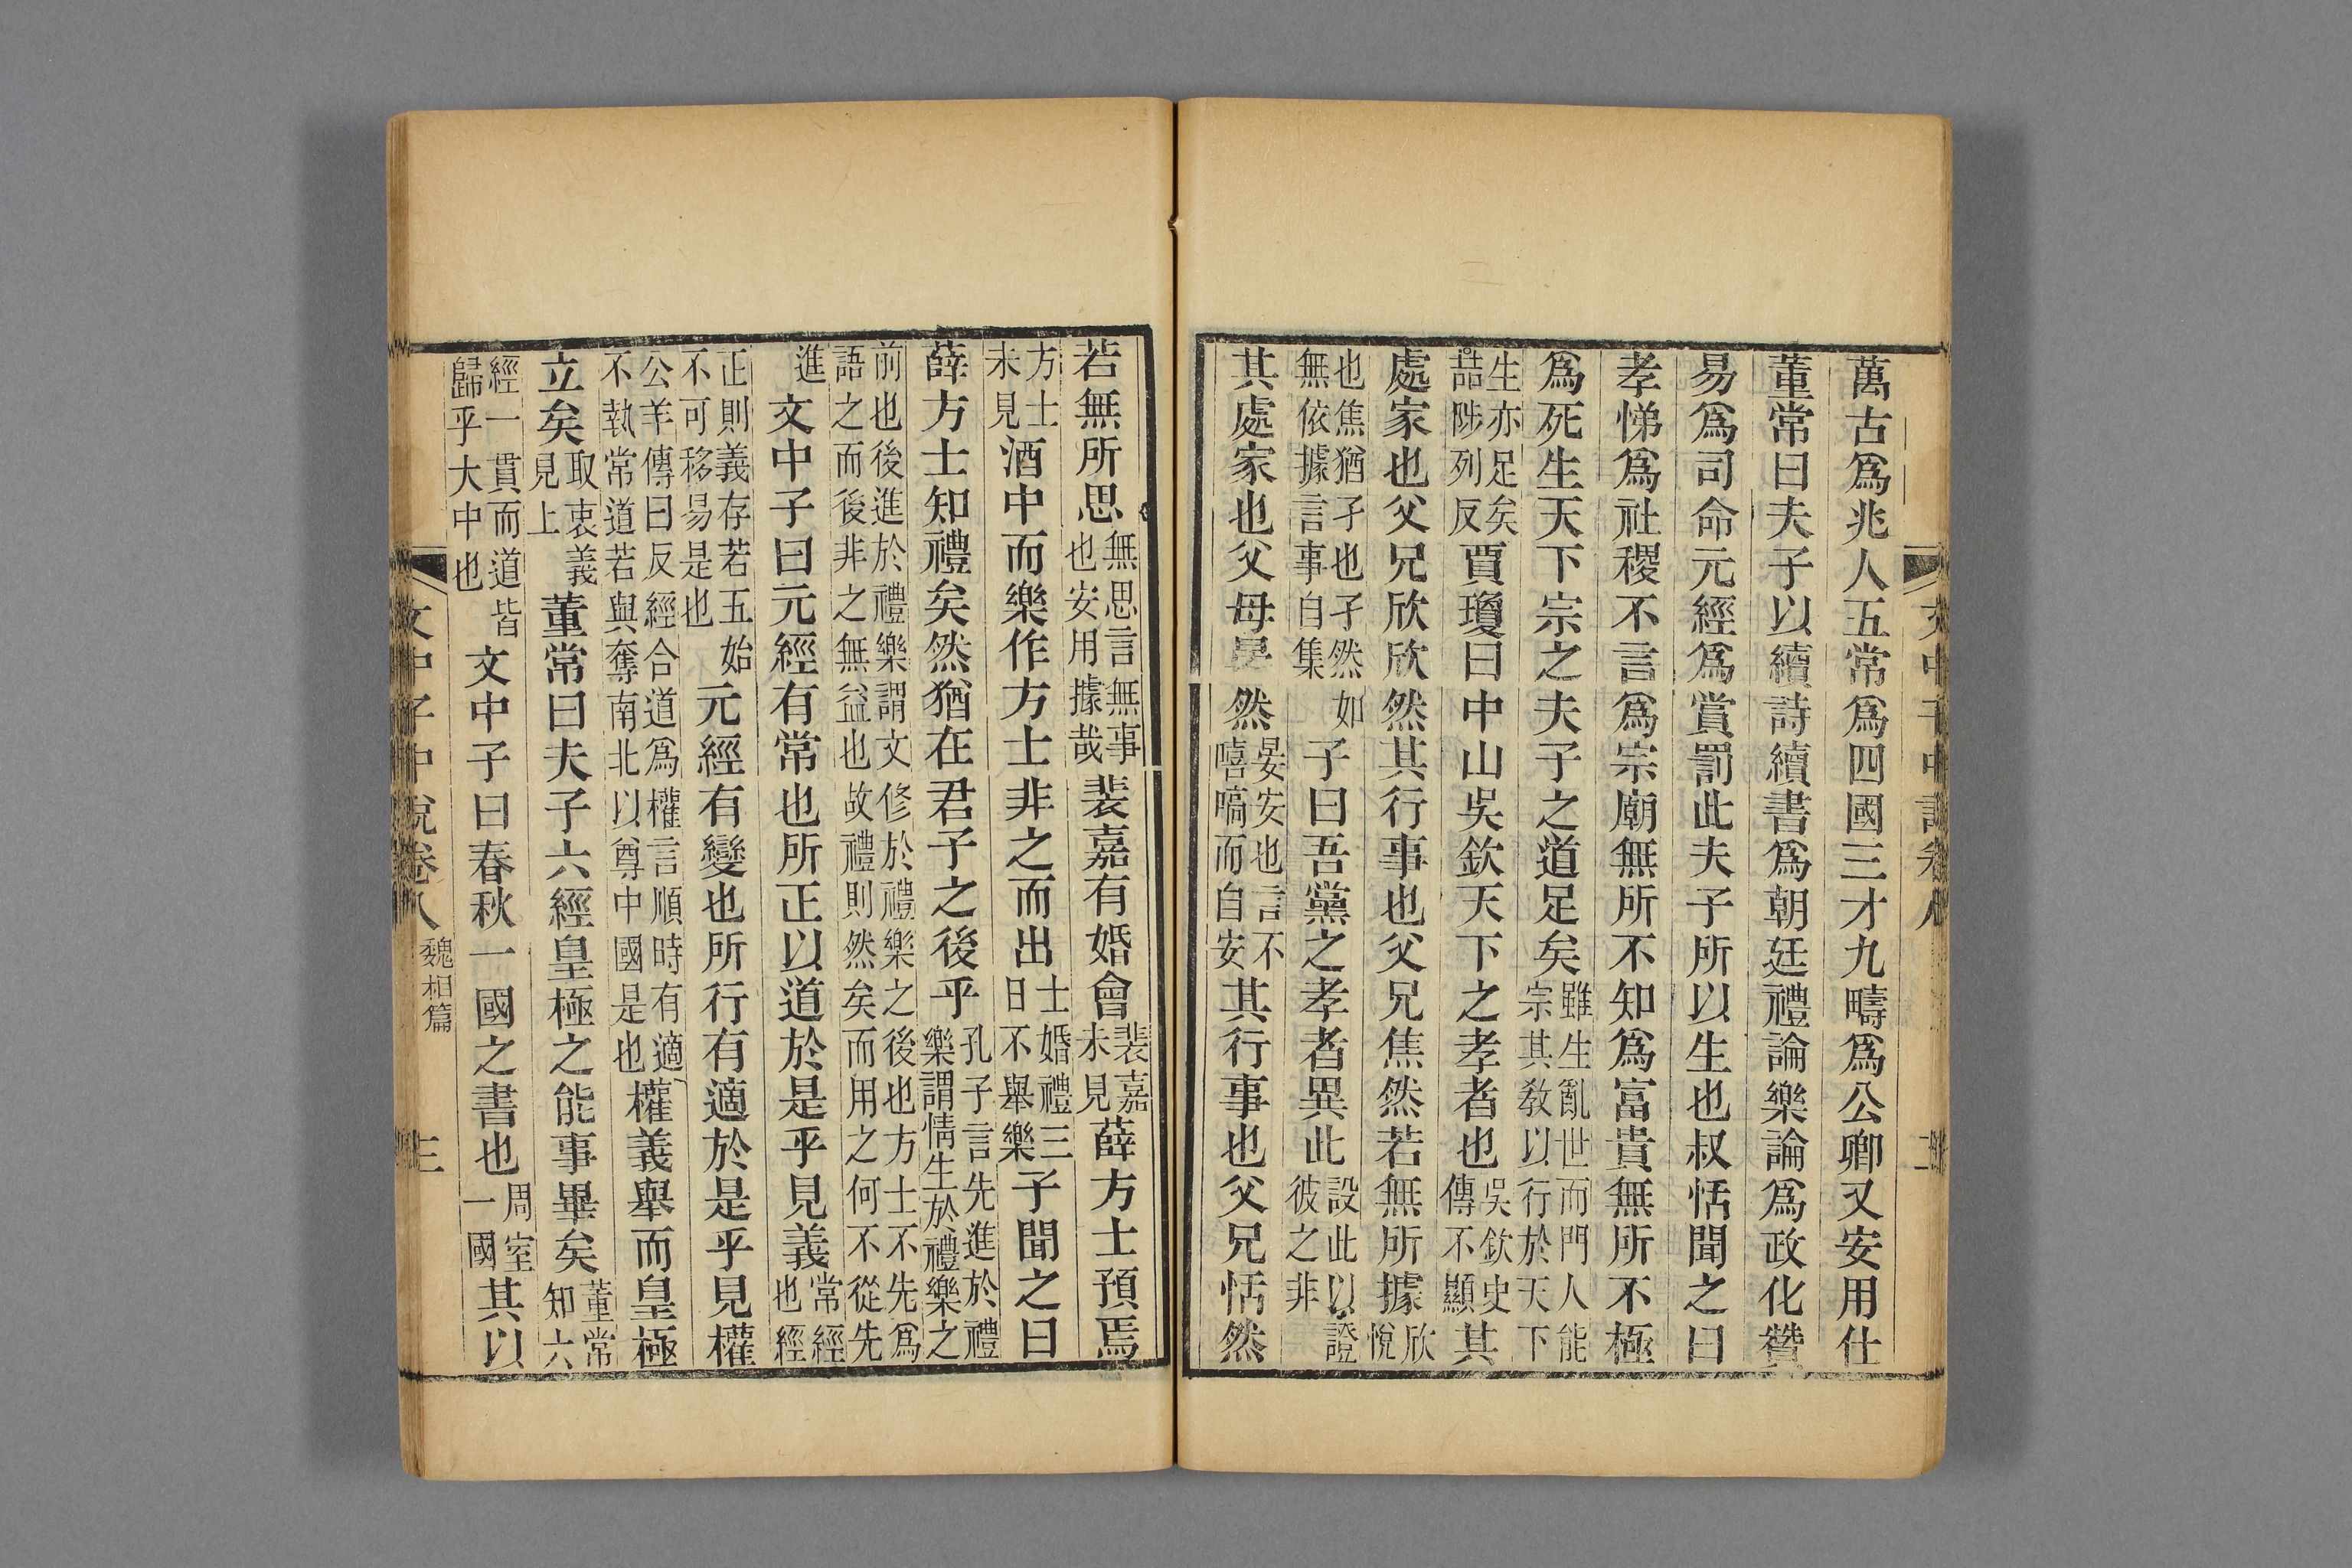 萬古爲兆人五常爲四國三才九疇爲公卿又安用仕
董常曰夫子以續詩續書爲朝廷禮論樂論爲政化贊
易爲司命元經爲賞罰此夫子所以生也叔恬聞之曰
孝悌爲社稷不言爲宗廟無所不知爲富貴無所不極
爲死生天下宗之夫子之道足矣雖生亂世而門人能宗其教以行於天下
生亦足矣喆陟列反賈瓊曰中山吳欽天下之孝者也吳欽史傳不顯其
處家也父兄欣欣然其行事也父兄焦然若無所據欣悅
也焦猶孑也孑然無依據言事自集如子曰吾黨之孝者異此設此以證彼之非
其處家也父母晏然晏安也言不嘻嗃而自安其行事也父兄恬然
若無所思無思言無事也安用據哉裴嘉有婚會裴嘉未見薛方士預焉
方士未見酒中而樂作方士非之而出士婚禮三日不舉樂子聞之曰
薛方士知禮矣然猶在君子之後乎孔子言先進於禮樂謂情生於禮樂之
前也後進於禮樂謂文修於禮樂之後也方士不先爲語之而後非之無益也故禮則然矣而用之何不從先
進文中子曰元經有常也所正以道於是乎見義常經也經
正則義存若五始不可移易是也元經有變也所行有適於是乎見權
公羊傳曰反經合道爲權言順時有適不執常道若與奪南北以尊中國是也權義舉而皇極
立矣取衷義見上董常曰夫子六經皇極之能事畢矣董常知六
經一貫而道皆歸乎大中也文中子曰春秋一國之書也周室一國其以
文中子中說卷八 魏相篇 三